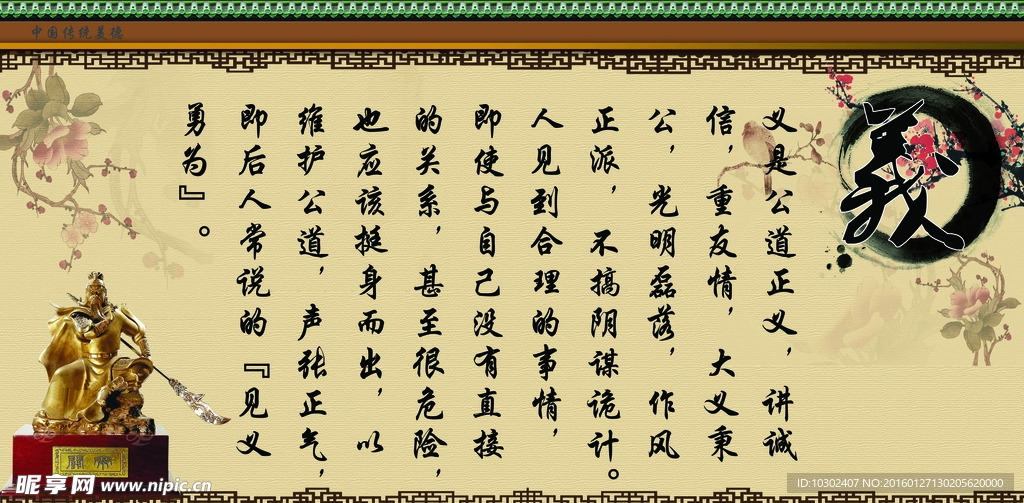 中国传统美德
義
义是公道正义，讲诚
信，重友情，大义秉
公，光明磊落，作风
正派，不搞阴谋诡计。
人见到合理的事情，
即使与自己没有直接
的关系，甚至很危险，
也应该挺身而出，以
维护公道，声张正气，
即后人常说的『见义
勇为』。
昵享网 www.nipic.cn
ID:10302407 NO:20160127130205620000